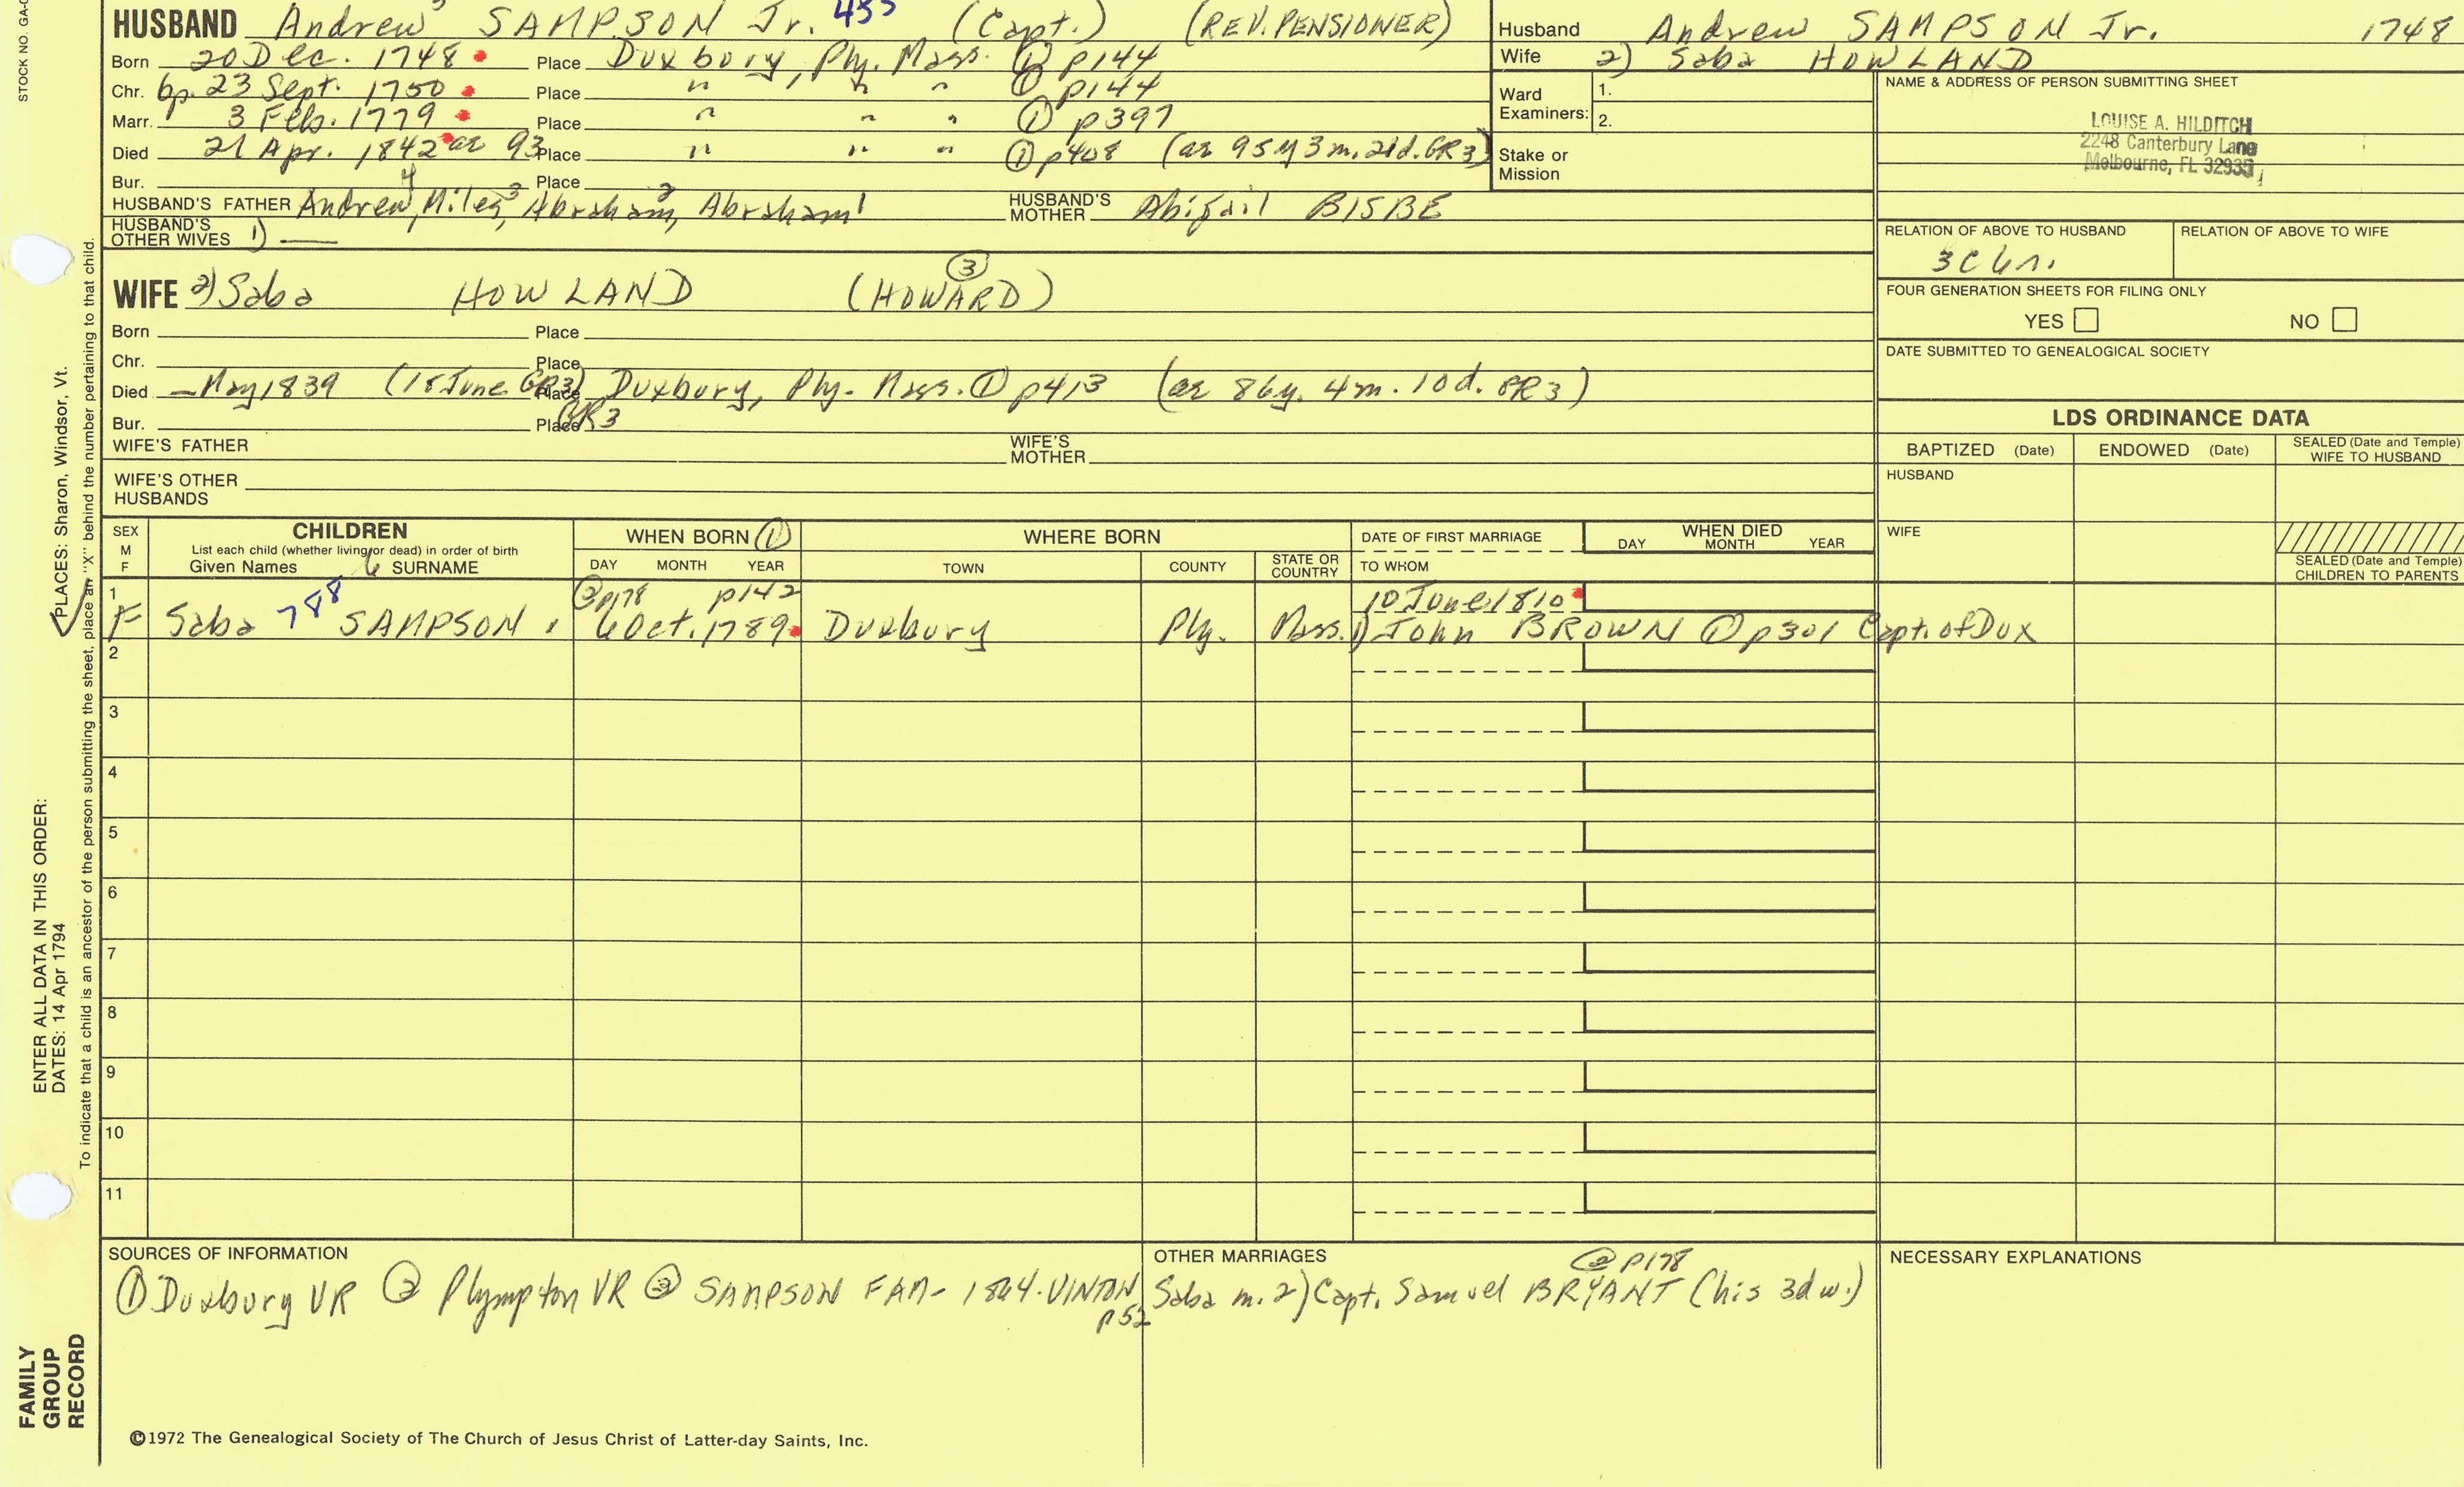 HUSBAND Andrew 5 SAMPSON Jr. 433 (Capt.) (REV. PENSIONER)
Born 20 Dec. 1748 Place Duxbury, Ply. Mass. ① p144
Chr. bp. 23 Sept. 1750 Place " " " ① p144
Marr. 3 Feb. 1779 Place " " " ① p397
Died 21 Apr. 1842 ae 93 Place " " " ① p408 (ae 95y 3m. 21d. GR3)
Bur. Place
HUSBAND'S FATHER Andrew 4, Miles 3, Abraham 2, Abraham 1 HUSBAND'S MOTHER Abigail BISBE
HUSBAND'S OTHER WIVES 1) —
Husband Andrew SAMPSON Jr. 1748
Wife 2) Saba HOWLAND
Ward Examiners: 1.
2.
Stake or Mission
NAME & ADDRESS OF PERSON SUBMITTING SHEET
LOUISE A. HILDITCH
2248 Canterbury Lane
Melbourne, FL 32935
RELATION OF ABOVE TO HUSBAND RELATION OF ABOVE TO WIFE
FOUR GENERATION SHEETS FOR FILING ONLY
YES NO
DATE SUBMITTED TO GENEALOGICAL SOCIETY
WIFE 2) Saba HOWLAND (HOWARD) ③
Born Place
Chr. Place
Died — May 1839 (18 June GR3) Place Duxbury, Ply. Mass. ① p413 (ae 86y. 4m. 10d. GR3)
Bur. Place GR3
WIFE'S FATHER WIFE'S MOTHER
WIFE'S OTHER HUSBANDS
LDS ORDINANCE DATA
BAPTIZED (Date) ENDOWED (Date) SEALED (Date and Temple) WIFE TO HUSBAND
HUSBAND
WIFE
SEALED (Date and Temple) CHILDREN TO PARENTS
SEX M F CHILDREN WHEN BORN ① WHERE BORN DATE OF FIRST MARRIAGE WHEN DIED
List each child (whether living or dead) in order of birth DAY MONTH YEAR
Given Names 6 SURNAME DAY MONTH YEAR TOWN COUNTY STATE OR COUNTRY TO WHOM
1 ② p178 p142 10 June 1810
F Saba 788 SAMPSON 6 Oct. 1789 Duxbury Ply. Mass. 1) John BROWN ① p301 Capt. of Dux
2
3
4
5
6
7
8
9
10
11
SOURCES OF INFORMATION
① Duxbury VR ② Plympton VR ③ SAMPSON FAM - 1864. VINTON
p52
OTHER MARRIAGES
② p178
Saba m. 2) Capt. Samuel BRYANT (his 3d w.)
NECESSARY EXPLANATIONS
©1972 The Genealogical Society of The Church of Jesus Christ of Latter-day Saints, Inc.
STOCK NO. GA-0
PLACES: Sharon, Windsor, Vt.
To indicate that a child is an ancestor of the person submitting the sheet, place an "X" behind the number pertaining to that child.
ENTER ALL DATA IN THIS ORDER:
DATES: 14 Apr 1794
FAMILY
GROUP
RECORD